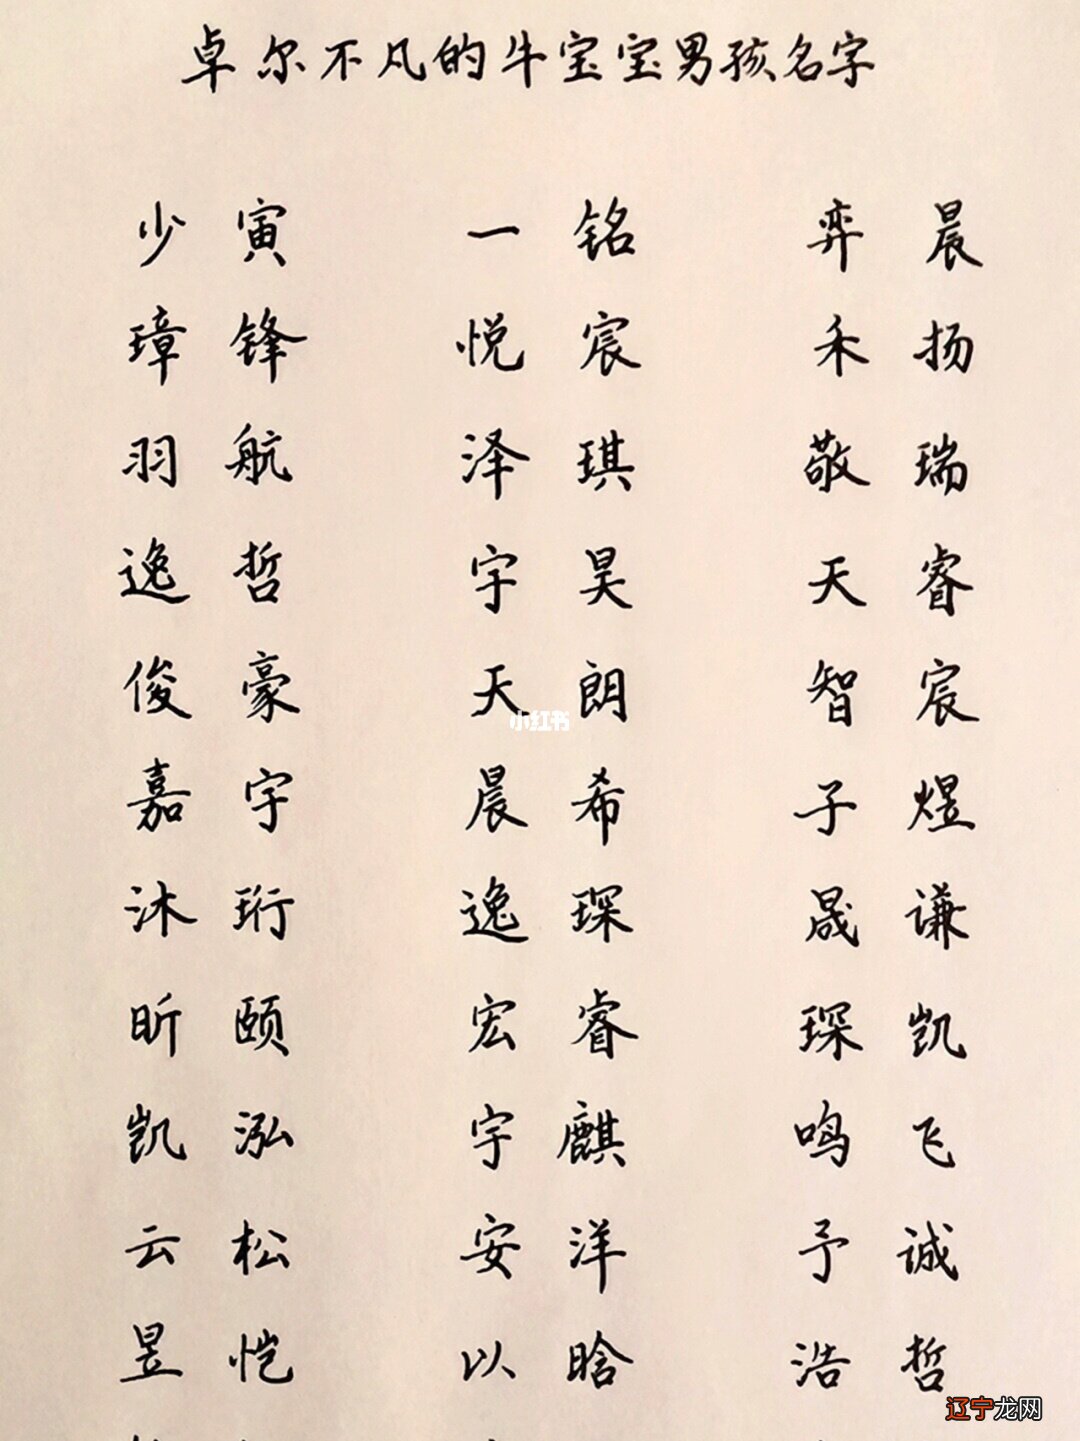 卓尔不凡的牛宝宝男孩名字
少寅 一铭 弈晨
璋锋 悦宸 禾扬
羽航 泽琪 敬瑞
逸哲 宇昊 天睿
俊豪 天朗 智宸
小红书
嘉宇 晨希 子煜
沐珩 逸琛 晟谦
昕颐 宏睿 琛凯
凯泓 宇麒 鸣飞
云松 安洋 予诚
昱恺 以晗 浩哲
辽宁龙网